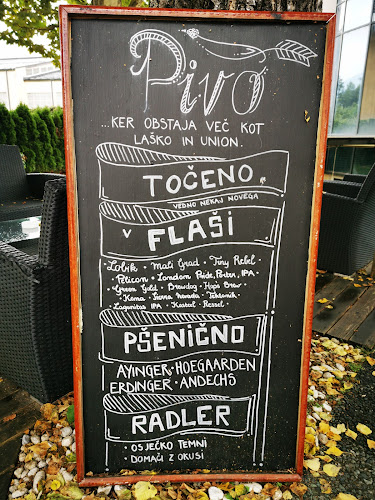 Pivo
...KER OBSTAJA VEČ KOT
LAŠKO IN UNION.
TOČENO
VEDNO NEKAJ NOVEGA
V FLAŠI
· Lobik · Mali Grad · Tiny Rebel ·
· Pelicon · London Pride, Porter, IPA ·
· Green Gold · Brewdog · Hopsbrew
· Kona · Sierra Nevada · Tektonik ·
Lagunitas IPA · Kasteel ·
PŠENIČNO
AYINGER · HOEGAARDEN
ERDINGER · ANDECHS
RADLER
· OSJEČKO TEMNI
· DOMAČI Z OKUSI